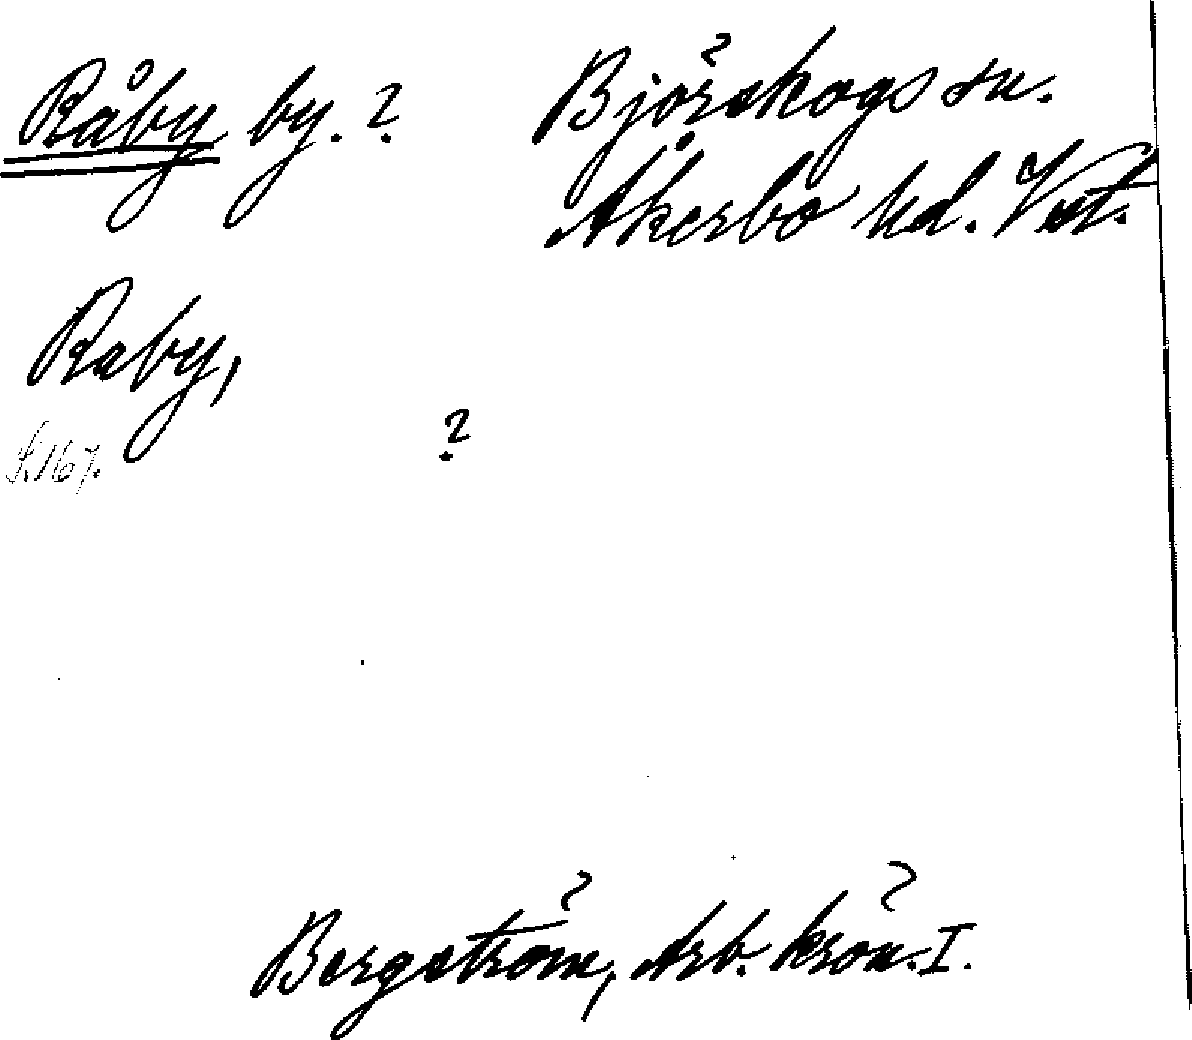 Råby by. ?
Björskogs sn.
Åkerbo hd. Vstm.
Raby,
s. 167.
?
Bergström, Arb. krön. I.